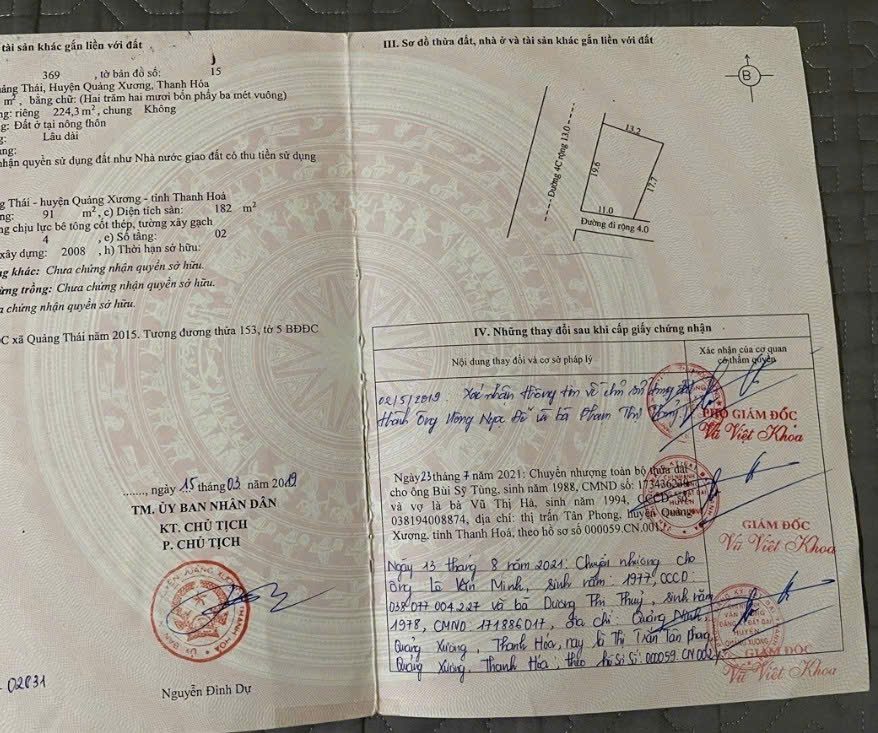 tài sản khác gắn liền với đất
369 , tờ bản đồ số: 15
ảng Thái, Huyện Quảng Xương, Thanh Hóa
m², bằng chữ: (Hai trăm hai mươi bốn phẩy ba mét vuông)
ng: riêng 224,3 m², chung Không
g: Đất ở tại nông thôn
g: Lâu dài
ng:
nhận quyền sử dụng đất như Nhà nước giao đất có thu tiền sử dụng
g Thái - huyện Quảng Xương - tỉnh Thanh Hoá
ng: 91 m², c) Diện tích sàn: 182 m²
ng chịu lực bê tông cốt thép, tường xây gạch
4 , e) Số tầng: 02
xây dựng: 2008 , h) Thời hạn sở hữu:
ng khác: Chưa chứng nhận quyền sở hữu.
ừng trồng: Chưa chứng nhận quyền sở hữu.
a chứng nhận quyền sở hữu.
C xã Quảng Thái năm 2015. Tương đương thửa 153, tờ 5 BĐĐC
........, ngày 15 tháng 03 năm 2019
TM. ỦY BAN NHÂN DÂN
KT. CHỦ TỊCH
P. CHỦ TỊCH
Nguyễn Đình Dự
02831
III. Sơ đồ thửa đất, nhà ở và tài sản khác gắn liền với đất
B
Đường 4C rộng 13.0
13,2
19,6
17,7
11.0
Đường đi rộng 4.0
IV. Những thay đổi sau khi cấp giấy chứng nhận
Nội dung thay đổi và cơ sở pháp lý
Xác nhận của cơ quan
có thẩm quyền
02/5/2019. Xác nhận thông tin về chủ sử dụng đất
thành Ông Hồng Ngọc và bà Phạm Thị
PHÓ GIÁM ĐỐC
Vũ Việt Khoa
Ngày 23 tháng 7 năm 2021: Chuyển nhượng toàn bộ thửa đất
cho ông Bùi Sỹ Tùng, sinh năm 1988, CMND số:
và vợ là bà Vũ Thị Hà, sinh năm 1994, CCCD
038194008874, địa chỉ: thị trấn Tân Phong, huyện Quảng
Xương, tỉnh Thanh Hoá, theo hồ sơ số 000059.CN.001
GIÁM ĐỐC
Vũ Việt Khoa
Ngày 13 tháng 8 năm 2021: Chuyển nhượng cho
Ông Lê Văn Minh, sinh năm: 1977, CCCD:
038 077 004 227 và bà Dương Thị Thuỷ, sinh năm
1978, CMND: 171886017, địa chỉ: Quảng Minh,
Quảng Xương, Thanh Hóa, nay là Thị Trấn Tân Phong,
Quảng Xương, Thanh Hóa; theo hồ sơ số: 000059.CN.002
GIÁM ĐỐC
Vũ Việt Khoa